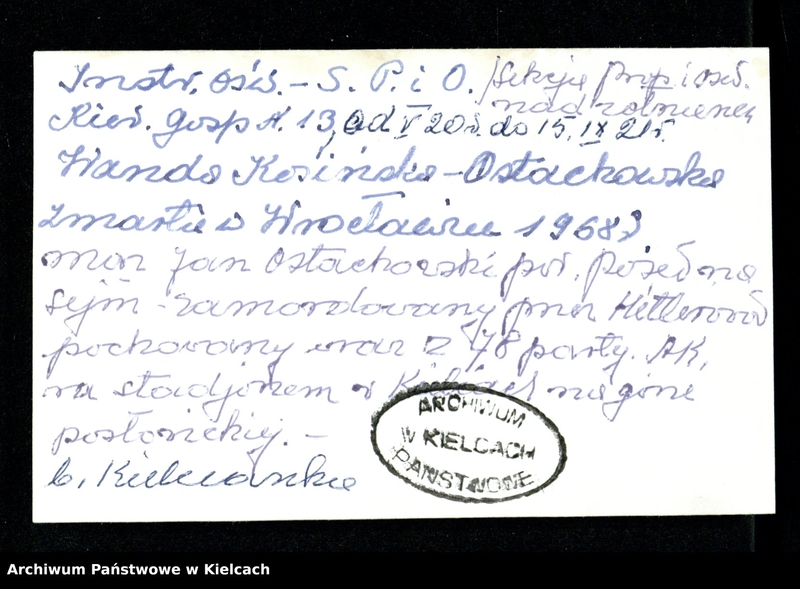 Instr. ośw. - S. P. i O. /Sekcję prop i ośw.
nad żołnierzem
Kier. Gosp N. 13, od V 20r. do 15. IX 21r.
Wanda Kosińska-Ostachowska
zmarła w Wrocławiu 1968r
mąż Jan Ostachowski poł. poseł na
sejm - zamordowany przez Hitlerowców
pochowany wraz z 78 party. AK,
na stadjonem w Kielcach na górze
ARCHIWUM
W KIELCACH
PAŃSTWOWE
Archiwum Państwowe w Kielcach